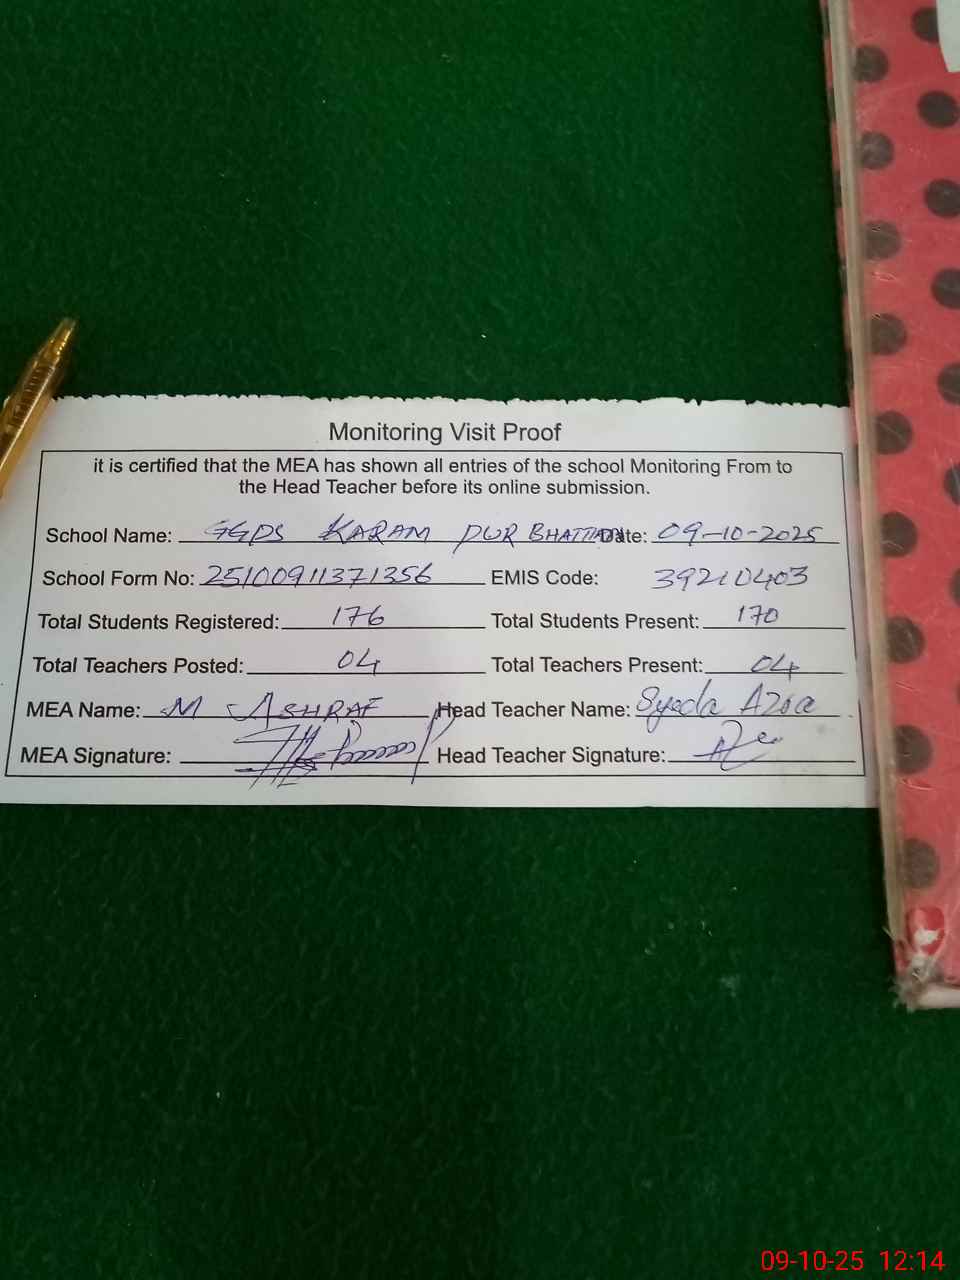 Monitoring Visit Proof
it is certified that the MEA has shown all entries of the school Monitoring From to
the Head Teacher before its online submission.
School Name: GGPS KARAM PUR BHATTIAN Date: 09-10-2025
School Form No: 25100911371356 EMIS Code: 39210403
Total Students Registered: 176 Total Students Present: 170
Total Teachers Posted: 04 Total Teachers Present: 04
MEA Name: M ASHRAF Head Teacher Name: Syeda Azra
MEA Signature: Head Teacher Signature:
09-10-25 12:14